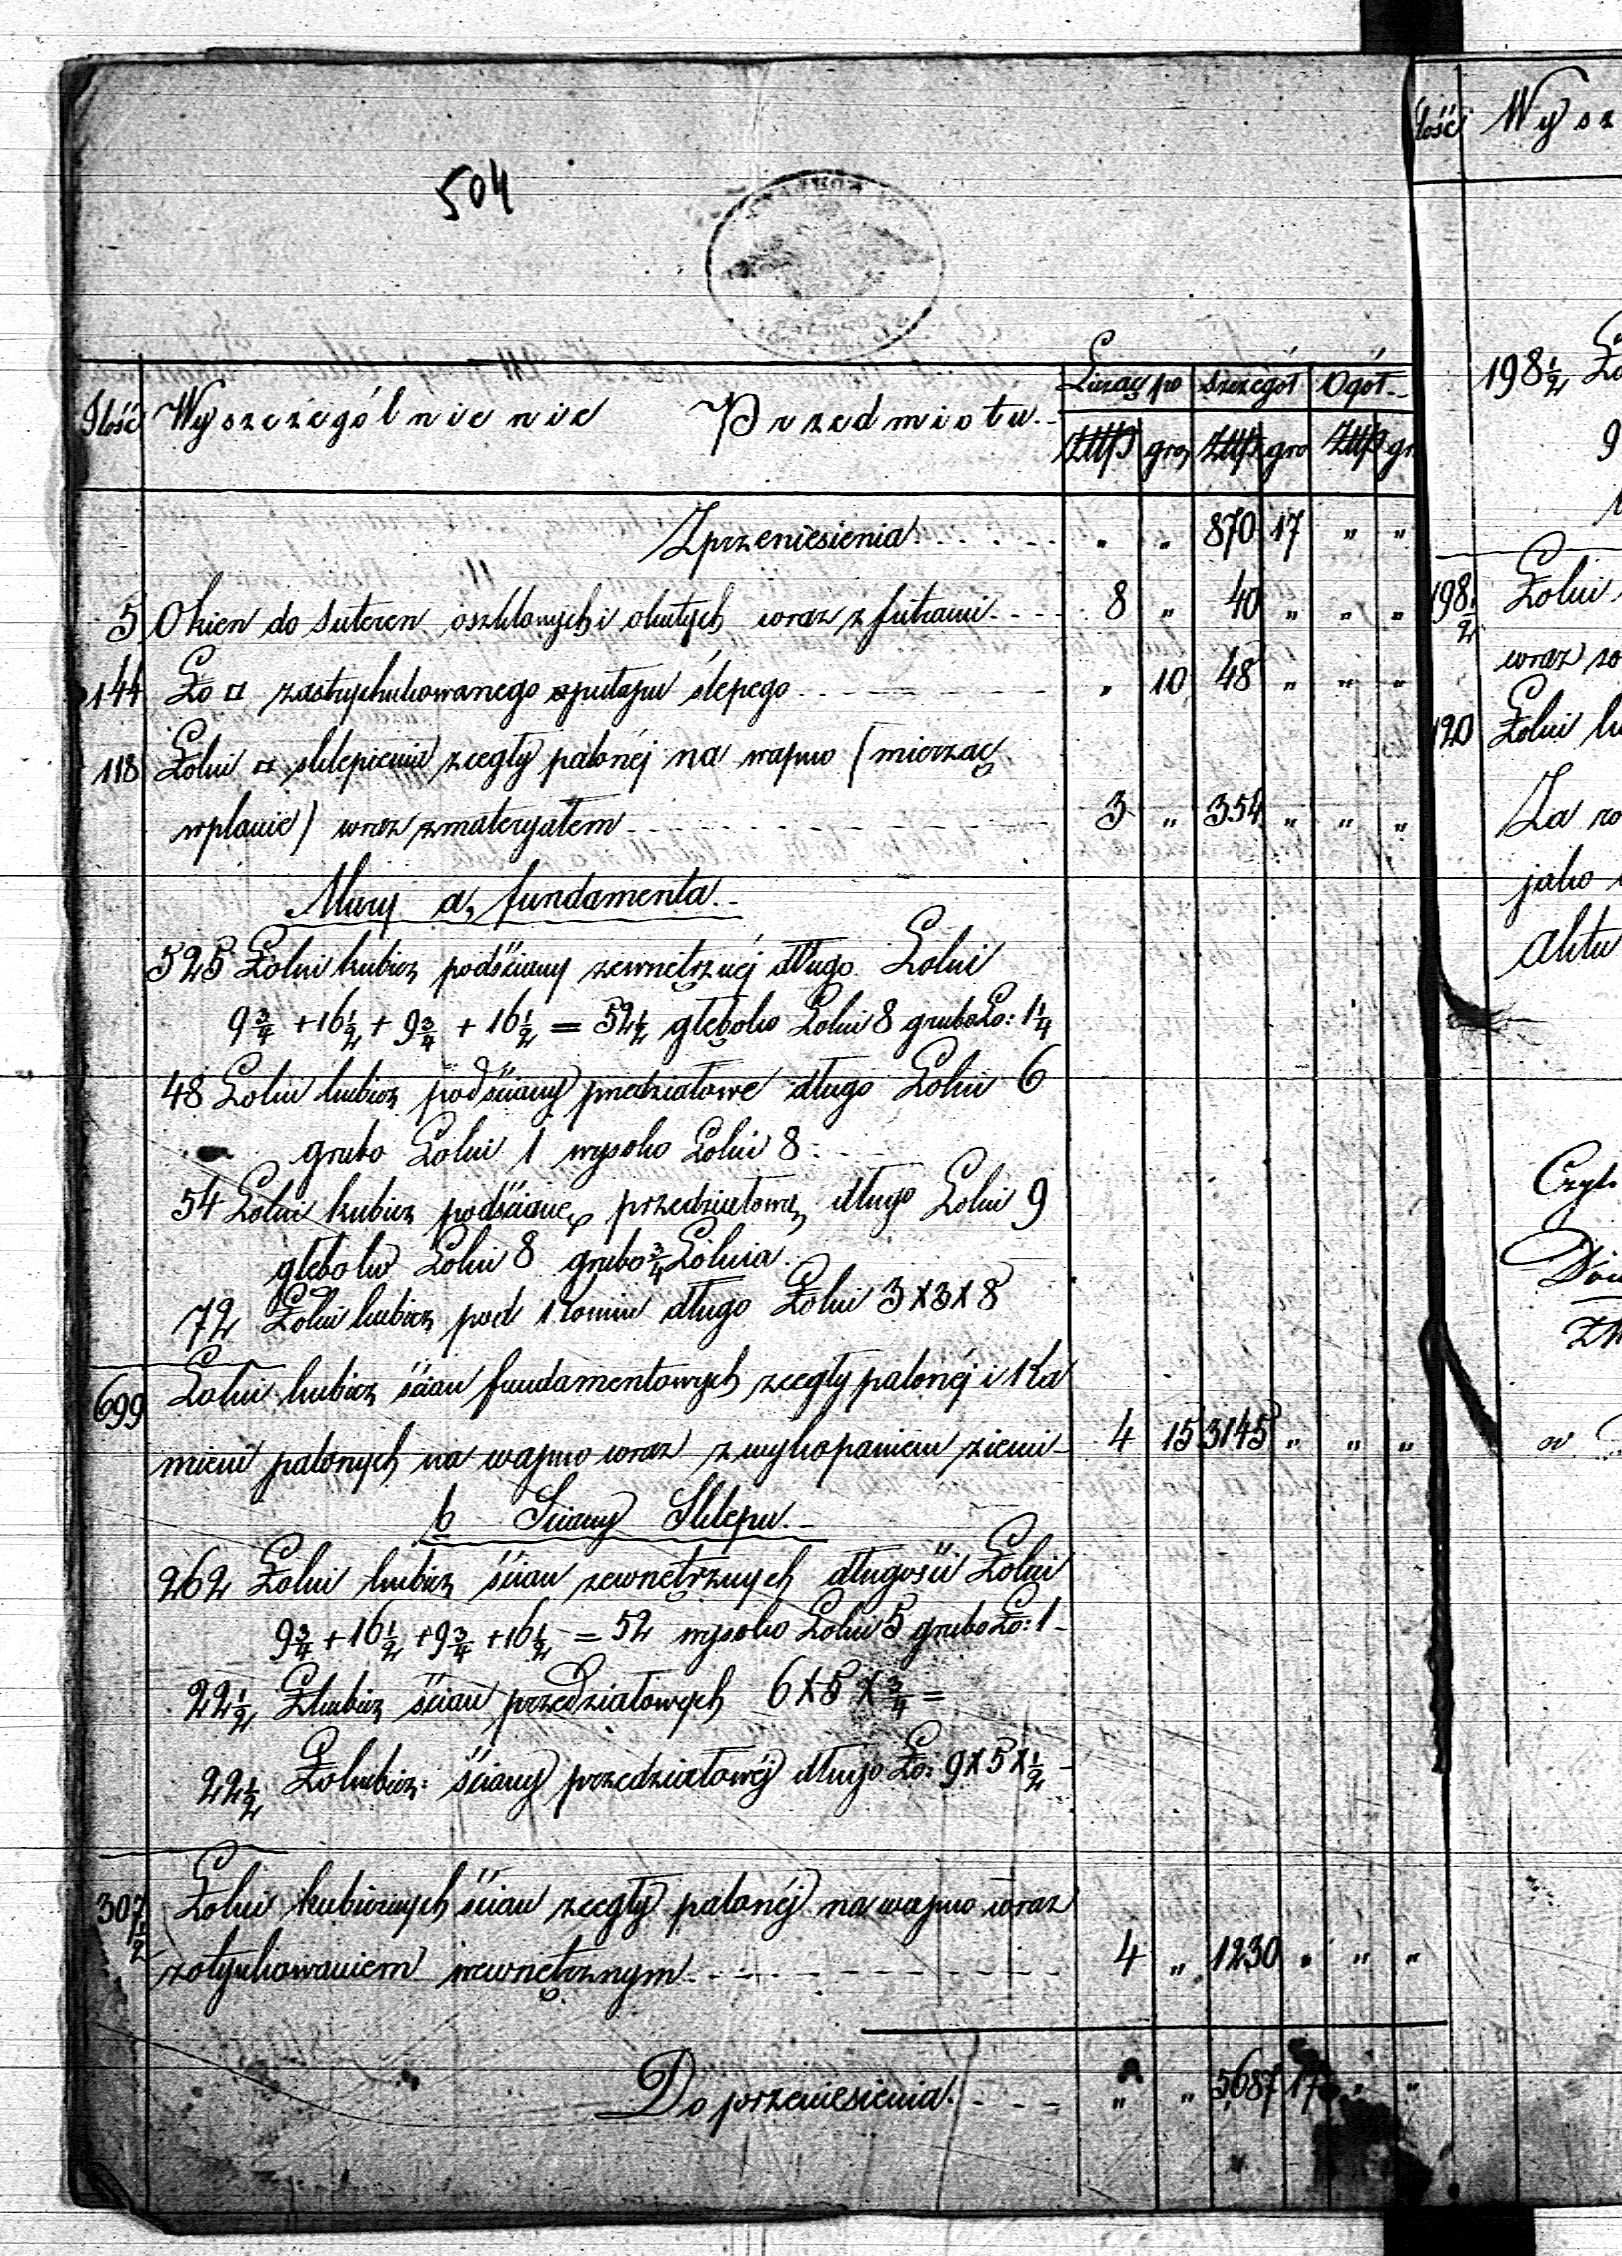 504
Ilość Wyszczególnienie Przedmiotu Licząc po Szczegół Ogół
Złłp gro Złłp gro Złłp gr
Zprzeniesienia 〃 〃 870 17 〃 〃
5 Okien do suteren oszklonych i okutych wraz z futrami 8 〃 40 〃 〃 〃
144 Ło □ zastrychulowanego pułapu ślepego 〃 10 48 〃 〃 〃
118 Łokci □ sklepienia z cegły palonéj na wapno (mierząc
wplanie) wraz z materyałem 3 〃 354 〃 〃 〃
Mury a, fundamenta
525 Łokci kubicz pod ściany zewnętrznéj długo Łokci
9 3/4 + 16 1/2 + 9 3/4 + 16 1/2 = 52 1/2 głęboko Łokci 8 grubo Ło: 1 1/4
48 Łokci kubicz pod ściany przedziałowe długo Łokci 6
grubo Łokci 1 wysoko Łokci 8
54 Łokci kubicz pod ścianę przedziałową długo Łokci 9
głęboko Łokci 8 grubo 3/4 Łokcia
72 Łokci kubicz pod komin długo Łokci 3 x 3 x 8
699 Łokci kubicz ścian fundamentowych z cegły palonéj i Ka
mieni palonych na wapno wraz z wykopaniem ziemi 4 15 3145 〃 〃 〃
b Ściany Sklepu
262 Łokci kubicz ścian zewnętrznych długości Łokci
9 3/4 + 16 1/2 + 9 3/4 + 16 1/2 = 52 wysoko Łokci 5 grubo Ło: 1
22 1/2 Łkubicz ścian przedziałowych 6 x 5 x 3/4 =
22 1/2 Łokubicz: ściany przedziałowéj długo Ło: 9 x 5 x 1/2
307 1/2 Łokci kubicznych ścian z cegły palonéj na wapno wraz
zotynkowaniem wewnętrznym 4 〃 1230 〃 〃 〃
Do przeniesienia 〃 〃 5687 17 〃 〃
Ilość Wysz
198 1/2
198 1/2 Łokci
wraz zo
120 Łokci ku
Za ro
jako
Aktu